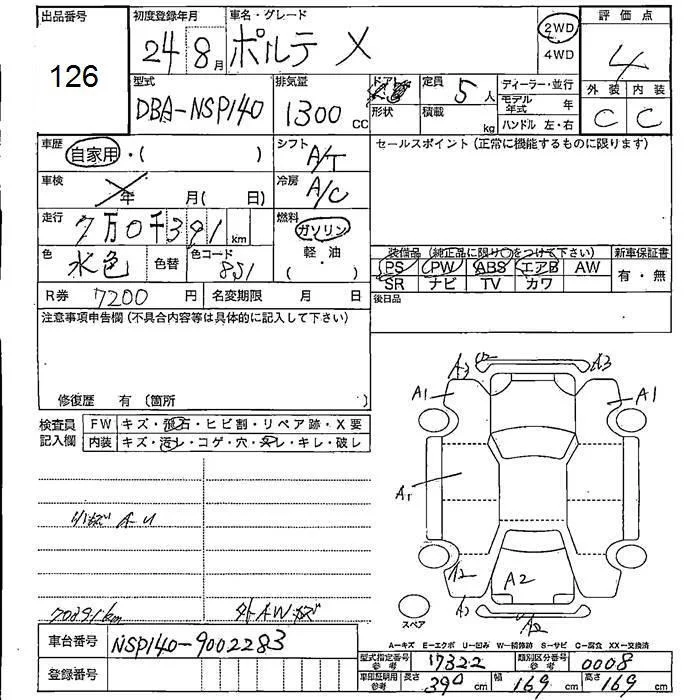 出品番号 初度登録年月 車名・グレード 2WD 評価点
126 24 8月 ポルテ X 4WD 4
型式 排気量 ドア 定員 5人 ディーラー・並行 外装 内装
DBA-NSP140 1300 CC 形状 積載 kg モデル年式 年 C C
ハンドル 左・右
車歴 自家用・( ) シフト A/T セールスポイント (正常に機能するものに限ります)
車検 年 月( 日) 冷房 A/C
走行 7万0千391km 燃料 ガソリン
色 水色 色替 色コード 8S1 軽・油 ( )
装備品 (純正品に限り○をつけて下さい) 新車保証書
PS PW ABS エアB AW 有・無
SR ナビ TV カワ
R券 7200 円 名変期限 月 日 後日品
注意事項申告欄 (不具合内容等は具体的に記入して下さい)
修復歴 有 (箇所 )
検査員記入欄 FW キズ・飛石・ヒビ割・リペア跡・X要
内装 キズ・汚レ・コゲ・穴・スレ・キレ・破レ
A3 A3
A1 A1
A1
A2 A2
A2
スペア
70391km 外AWキズ
A-キズ E-エクボ U-凹み W-補修跡 S-サビ C-腐食 XX-交換済
車台番号 NSP140-9002283
型式指定番号 参考 17322 類別区分番号 参考 0008
登録番号
車印証明用 参考 長さ 390 cm 幅 169 cm 高さ 169 cm